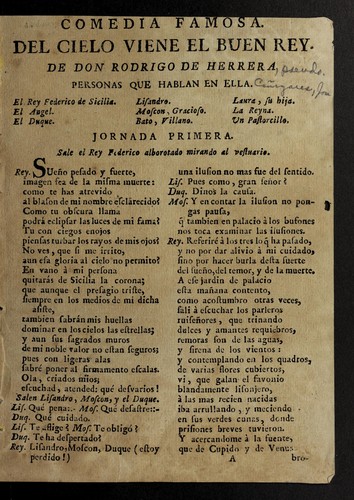 COMEDIA FAMOSA.
DEL CIELO VIENE EL BUEN REY.
DE DON RODRIGO DE HERRERA,
PERSONAS QUE HABLAN EN ELLA.
El Rey Federico de Sicilia. Lisandro. Laura, su hija.
El Angel. Moscon, Gracioso. La Reyna.
El Duque. Bato, Villano. Un Pastorcillo.
JORNADA PRIMERA.
Sale el Rey Federico alborotado mirando al vestuario.
Rey. SUeño pesado y fuerte,
imagen sea de la misma muerte:
como te has atrevido
al blason de mi nombre esclarecido?
Como tu obscura llama
podrá eclipsar las luces de mi fama?
Tu con ciegos enojos
piensas turbar los rayos de mis ojos?
No ves, que si me irrito,
aun esta gloria al cielo no permito?
En vano á mi persona
quitarás de Sicilia la corona;
que aunque el presagio triste,
siempre en los medios de mi dicha
asiste,
tambien sabrán mis huellas
dominar en los cielos las estrellas;
y aun sus sagrados muros
de mi noble valor no estan seguros;
pues con ligeras alas
sabré poner al firmamento escalas.
Ola, criados mios;
escuchad, atended: qué desvarios!
Salen Lisandro, Moscon, y el Duque.
Lis. Qué pena: Mos. Qué desastre:
Duq. Qué cuidado.
Lis. Te aflige? Mos. Te obligó?
Duq. Te ha despertado?
Rey. Lisandro, Moscon, Duque (estoy
perdido!)
una ilusion no mas fue del sentido.
Lis. Pues como, gran señor?
Duq. Dinos la causa.
Mos. Y en contar la ilusion no pongas
pausa;
q̃ tambien en palacio á los bufones
nos toca examinar las ilusiones.
Rey. Referiré á los tres lo q̃ ha pasado,
y no por dar alivio á mi cuidado,
sino por hacer burla desta fuerte
del sueño, del temor, y de la muerte.
A ese jardin de palacio
esta mañana contento,
como acostumbro otras veces,
sali á escuchar los parleros
ruiseñores, que trinando
dulces y amantes requiebros,
remoras son de las aguas,
y sirena de los vientos:
y contemplando en los quadros,
de varias flores cubiertos,
vi, que galan el favonio
blandamente lisonjero,
á las mas recien nacidas
iba arrullando, y meciendo
en sus verdes cunas, donde
prisiones breves tuvieron.
Y acercandome á la fuente,
que de Cupido y de Venus
A bro-